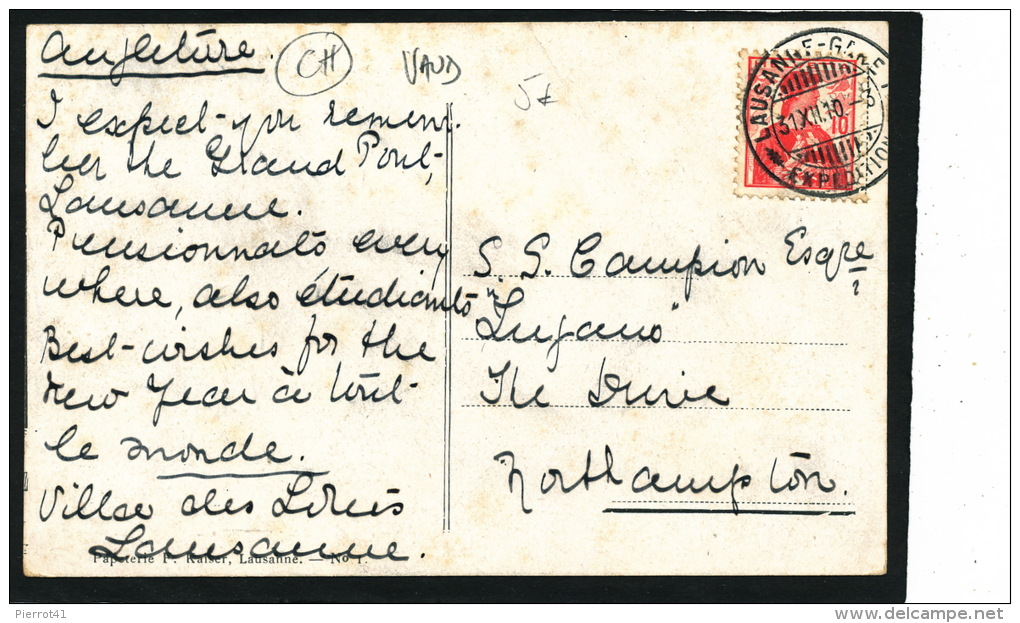 Angleterre.
CH
VAUD
5€
I expect you remem-
ber the Grand Pont,
Lausanne.
Pensionnats every
where, also étudiants
Best wishes for the
New Year à tout
le monde.
Villa des
Lausanne.
Papeterie F. Kaiser, Lausanne. — No 1.
LAUSANNE-GARE
31.XII.10.-8
EXPÉDITION
10
S. S. Campion Esqre
"Lugano"
The Drive
Northampton.
Pierrot41
delcampe.net